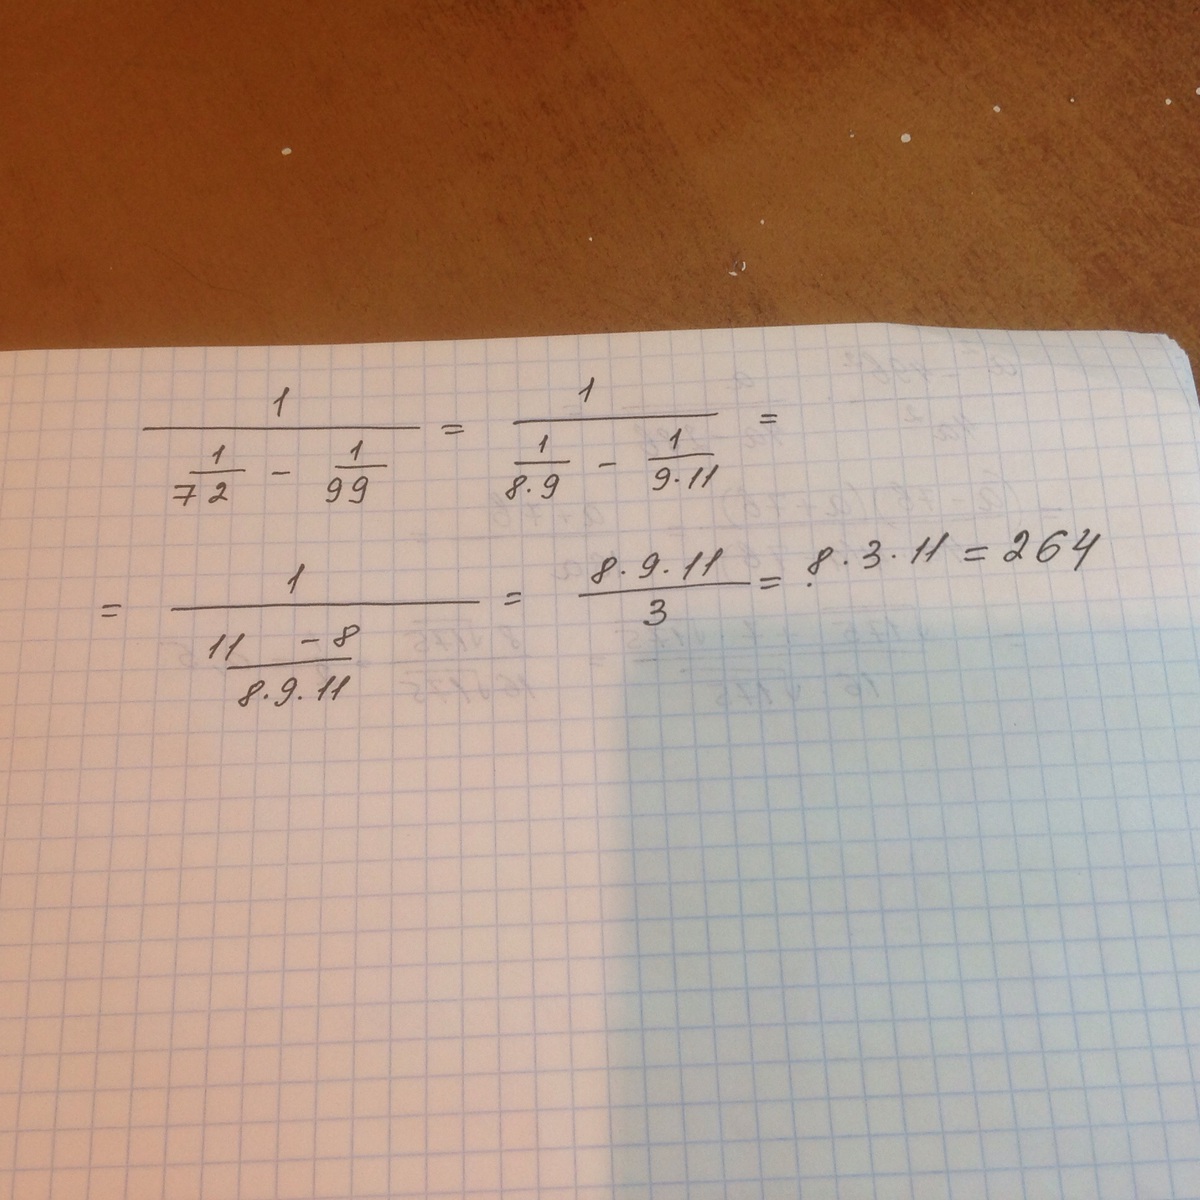 1/(1/72 - 1/99) = 1/(1/(8·9) - 1/(9·11)) =
= 1/((11 - 8)/(8·9·11)) = (8·9·11)/3 = 8·3·11 = 264